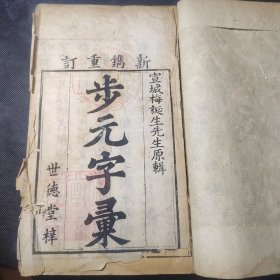 新鐫重訂
宣城梅誕生先生原輯
步元字彙
世德堂梓